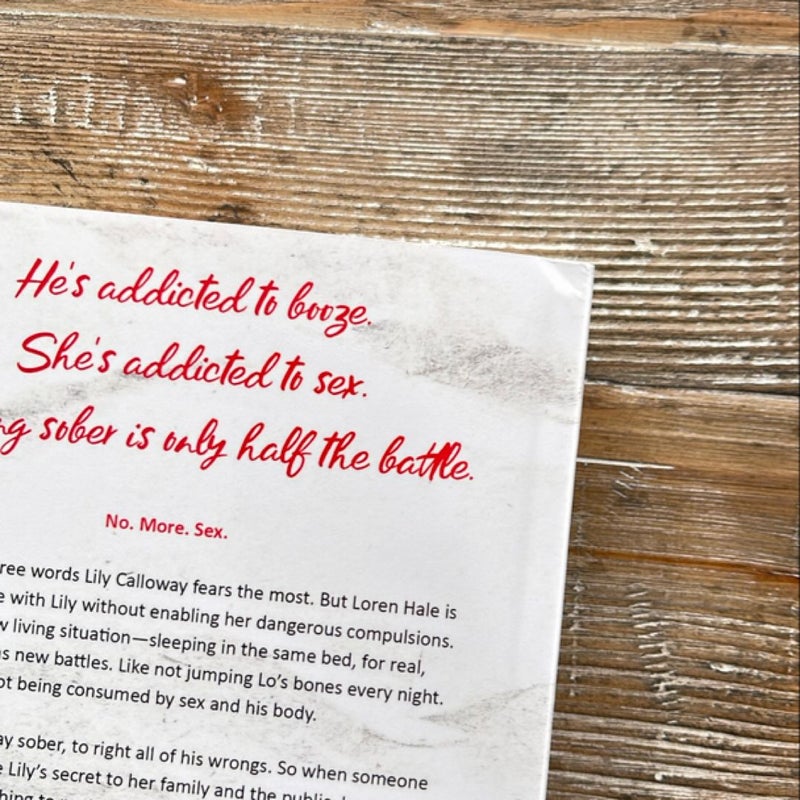 He's addicted to booze.
She's addicted to sex.
sober is only half the battle.
No. More. Sex.
words Lily Calloway fears the most. But Loren Hale is
with Lily without enabling her dangerous compulsions.
living situation—sleeping in the same bed, for real,
new battles. Like not jumping Lo's bones every night.
being consumed by sex and his body.
sober, to right all of his wrongs. So when someone
Lily's secret to her family and the public